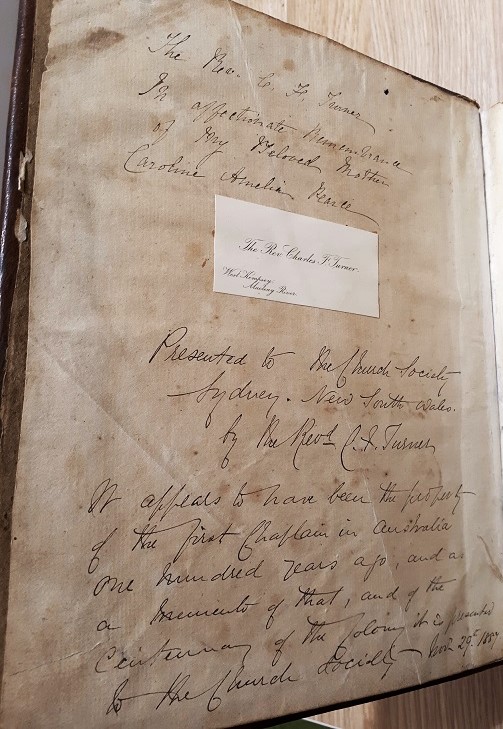 The Rev. C F Turner
In affectionate Remembrance
of My Beloved Mother
Caroline Amelia Pearce
The Rev. Charles F Turner.
West Kempsey
Macleay River.
Presented to the Church Society
Sydney. New South Wales.
by the Revd C. F. Turner
It appears to have been the property
of the first Chaplain in Australia
one hundred years ago, and as
a memento of that, and of the
Centenary of the Colony it is presented
to the Church Society Nov 29th 1887